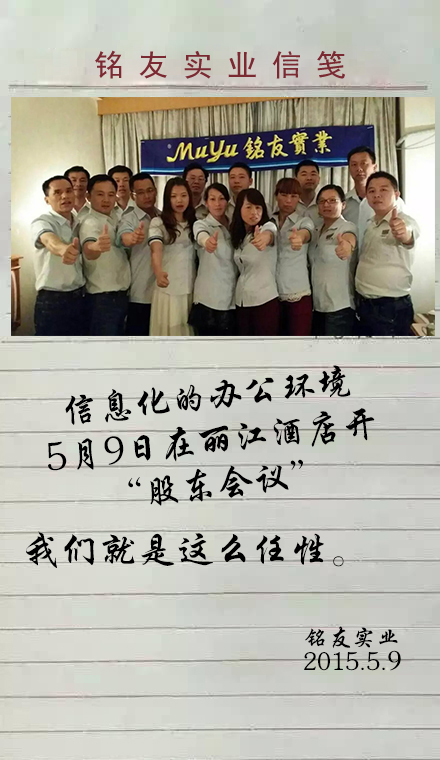 铭友实业信笺
MuYu 铭友實業
信息化的办公环境
5月9日在丽江酒店开
“股东会议”
我们就是这么任性。
铭友实业
2015.5.9